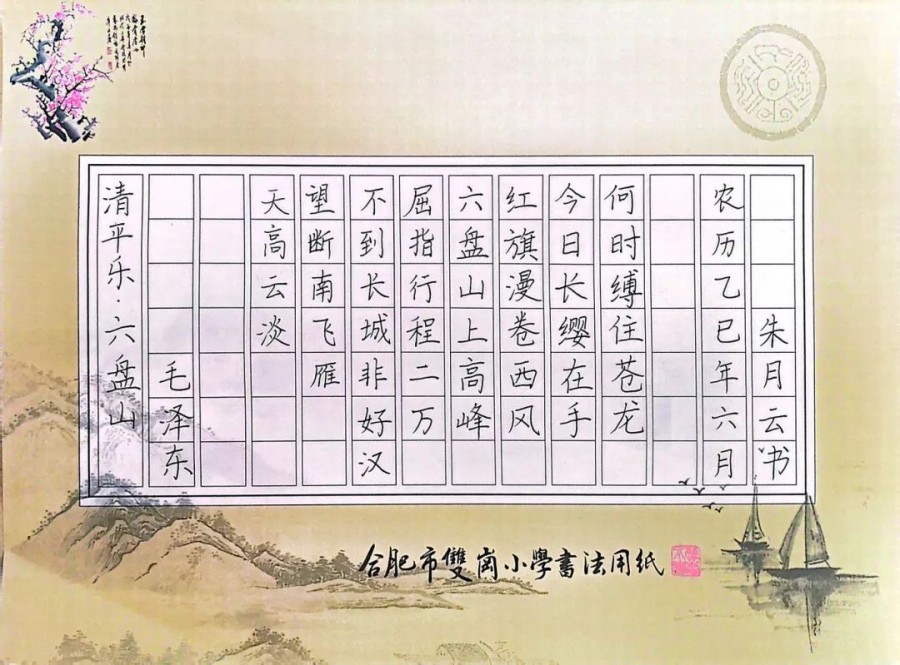 清平乐·六盘山
毛泽东
天高云淡
望断南飞雁
不到长城非好汉
屈指行程二万
六盘山上高峰
红旗漫卷西风
今日长缨在手
何时缚住苍龙
农历乙巳年六月
朱月云书
合肥市雙崗小學書法用紙